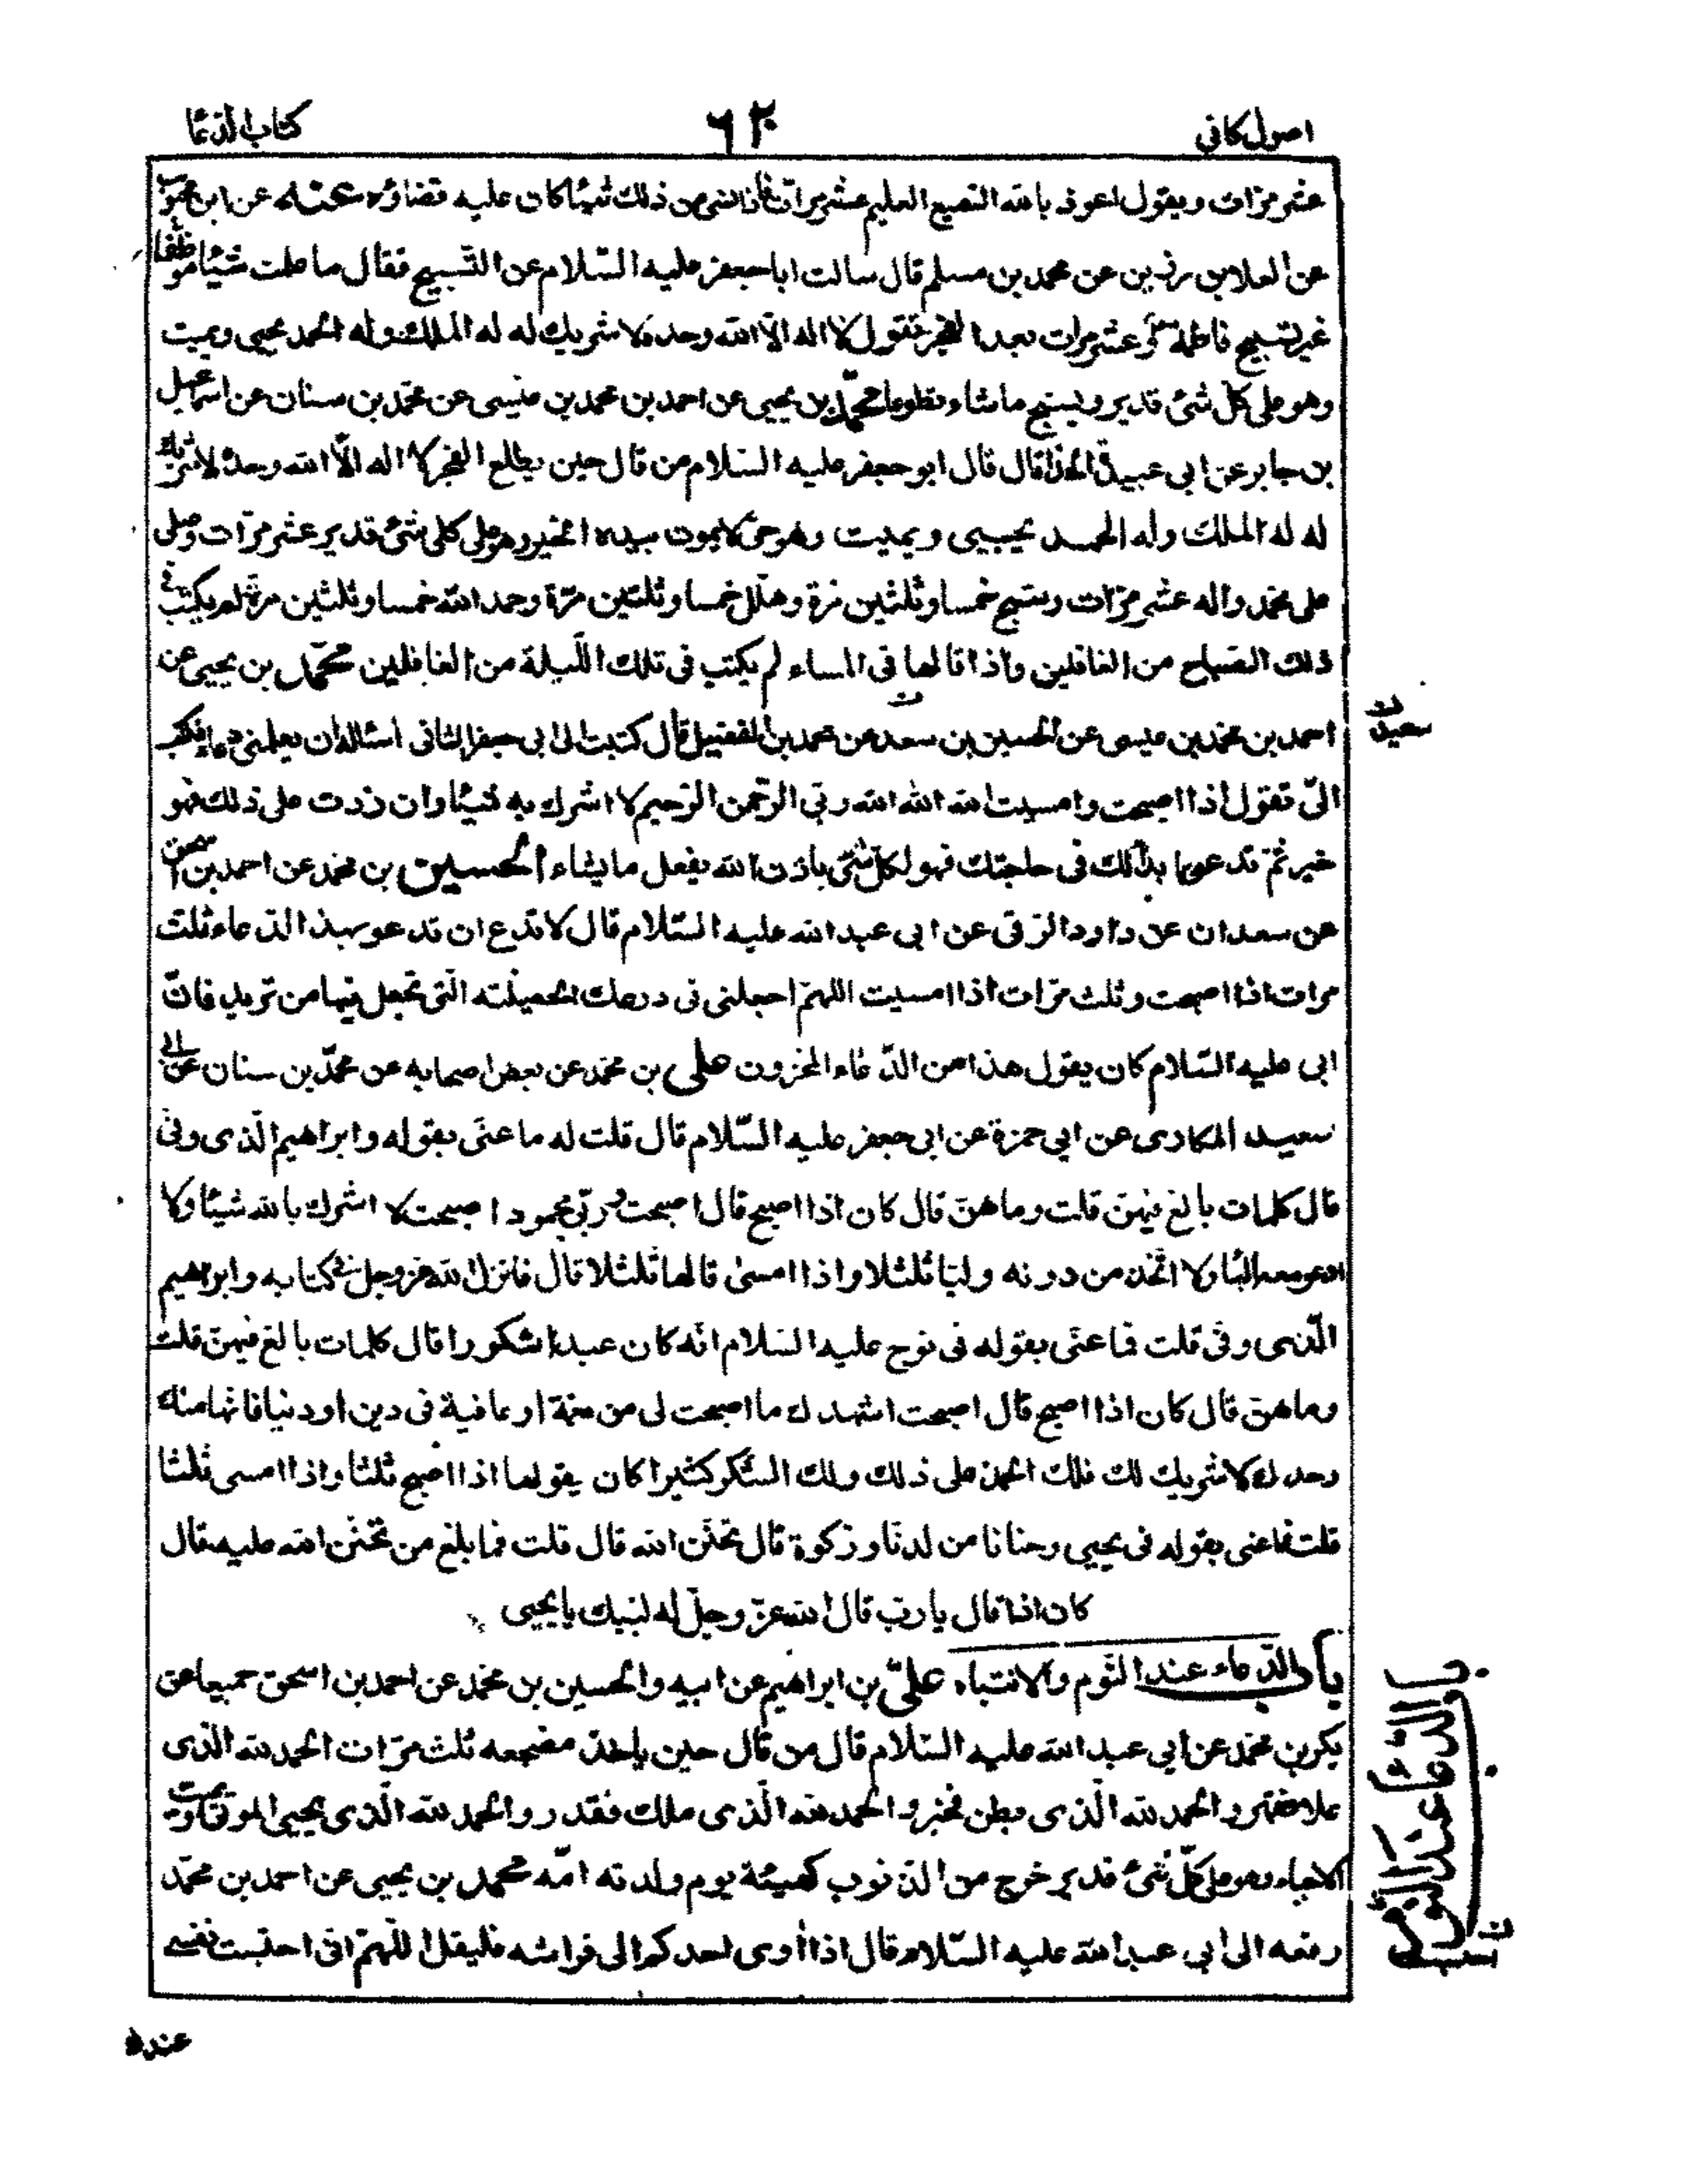 اصول كافي
٦٢
كتاب الدعا
عشر مرّات ويقول اعوذ بالله السميع العليم عشر مرات فاذا نسى من ذلك شيئا كان عليه قضاؤه عنه عن ابن محبوب
عن العلا بن رزين عن محمد بن مسلم قال سالت ابا جعفر عليه السّلام عن التّسبيح فقال ما علمت شيئا موظفا
غير تسبيح فاطمة وعشر مرات بعد الفجر تقول لا اله الّا الله وحده لا شريك له له الملك وله الحمد يحيى ويميت
وهو على كلّ شئ قدير ويسبح ما شاء تطوعا محمّد بن يحيى عن احمد بن محمد بن عيسى عن محمّد بن سنان عن اسمعيل
بن جابر عن ابى عبيدة الحذا قال قال ابو جعفر عليه السّلام من قال حين يطلع الفجر لا اله الّا الله وحده لا شريك
له له الملك وله الحمد يحيى ويميت وهو حىّ لا يموت بيده الخير وهو على كلّ شئ قدير عشر مرّات وصلى
على محمّد واله عشر مرّات وسبّح خمسا وثلثين مرّة وهلّل خمسا وثلثين مرّة وحمد الله خمسا وثلثين مرّة لم يكتب فى
ذلك الصّباح من الغافلين واذا قالها فى المساء لم يكتب فى تلك اللّيلة من الغافلين محمّد بن يحيى عن
احمد بن محمّد بن عيسى عن الحسين بن سعد عن محمد بن الفضيل قال كتبت الى ابى جعفر الثانى اسئاله ان يعلمنى دعاء فكتب
سعيد
الىّ تقول اذا اصبحت وامسيت الله الله الله ربّى الرّحمن الرّحيم لا اشرك به شيئا وان زدت على ذلك فهو
خير ثمّ تدعو بما بدا لك فى حاجتك فهو لكلّ شئ باذن الله يفعل ما يشاء الحسين بن محمد عن احمد بن اسحق
عن سعدان عن داود الرّقى عن ابى عبد الله عليه السّلام قال لا تدع ان تدعو بهذا الدّعاء ثلث
مرات اذا اصبحت وثلث مرّات اذا امسيت اللهمّ اجعلنى فى درعك الحصينة الّتى تجعل فيها من تريد فانّ
ابى عليه السّلام كان يقول هذا من الدّعاء المخزون على بن محمّد عن بعض اصحابه عن محمّد بن سنان عن ابى
سعيد المكارى عن ابى حمزة عن ابى جعفر عليه السّلام قال قلت له ما عنى بقوله وابراهيم الّذى وفّى
قال كلمات بالغ فيهنّ قلت وما هنّ قال كان اذا اصبح قال اصبحت وربّى محمود اصبحت لا اشرك بالله شيئا ولا
ادعو معه الها ولا اتّخذ من دونه وليّا ثلثا واذا امسى قالها ثلثا قال فانزل الله عزّ وجل فى كتابه وابرهيم
الّذى وفّى قلت فما عنى بقوله فى نوح عليه السّلام انّه كان عبدا شكورا قال كلمات بالغ فيهنّ قلت
وما هنّ قال كان اذا اصبح قال اصبحت اشهدك ما اصبحت لى من نعمة او عافية فى دين او دنيا فانها منك
وحدك لا شريك لك فلك الحمد على ذلك ولك الشّكر كثيرا كان يقولها اذا اصبح ثلثا واذا امسى ثلثا
قلت فما عنى بقوله فى يحيى وحنانا من لدنّا وزكوة قال تحنّن الله قال قلت فما بلغ من تحنّن الله عليه قال
كان اذا قال يا ربّ قال الله عزّ وجلّ له لبّيك يا يحيى
باب الدّعاء عند النّوم والانتباه علىّ بن ابراهيم عن ابيه والحسين بن محمّد عن احمد بن اسحق جميعا عن
باب الدّعا عند النوم
بكر بن محمّد عن ابى عبد الله عليه السّلام قال من قال حين ياخذ مضجعه ثلث مرّات الحمد لله الّذى
علا فقهر والحمد لله الّذى بطن فخبر والحمد لله الّذى ملك فقدر والحمد لله الّذى يحيى الموتى ويميت
الاحياء وهو على كلّ شئ قدير خرج من الذّنوب كهيئة يوم ولدته امّه محمّد بن يحيى عن احمد بن محمّد
رفعه الى ابى عبد الله عليه السّلام قال اذا اوى احدكم الى فراشه فليقل اللّهمّ انى احتبست نفسى
عندك